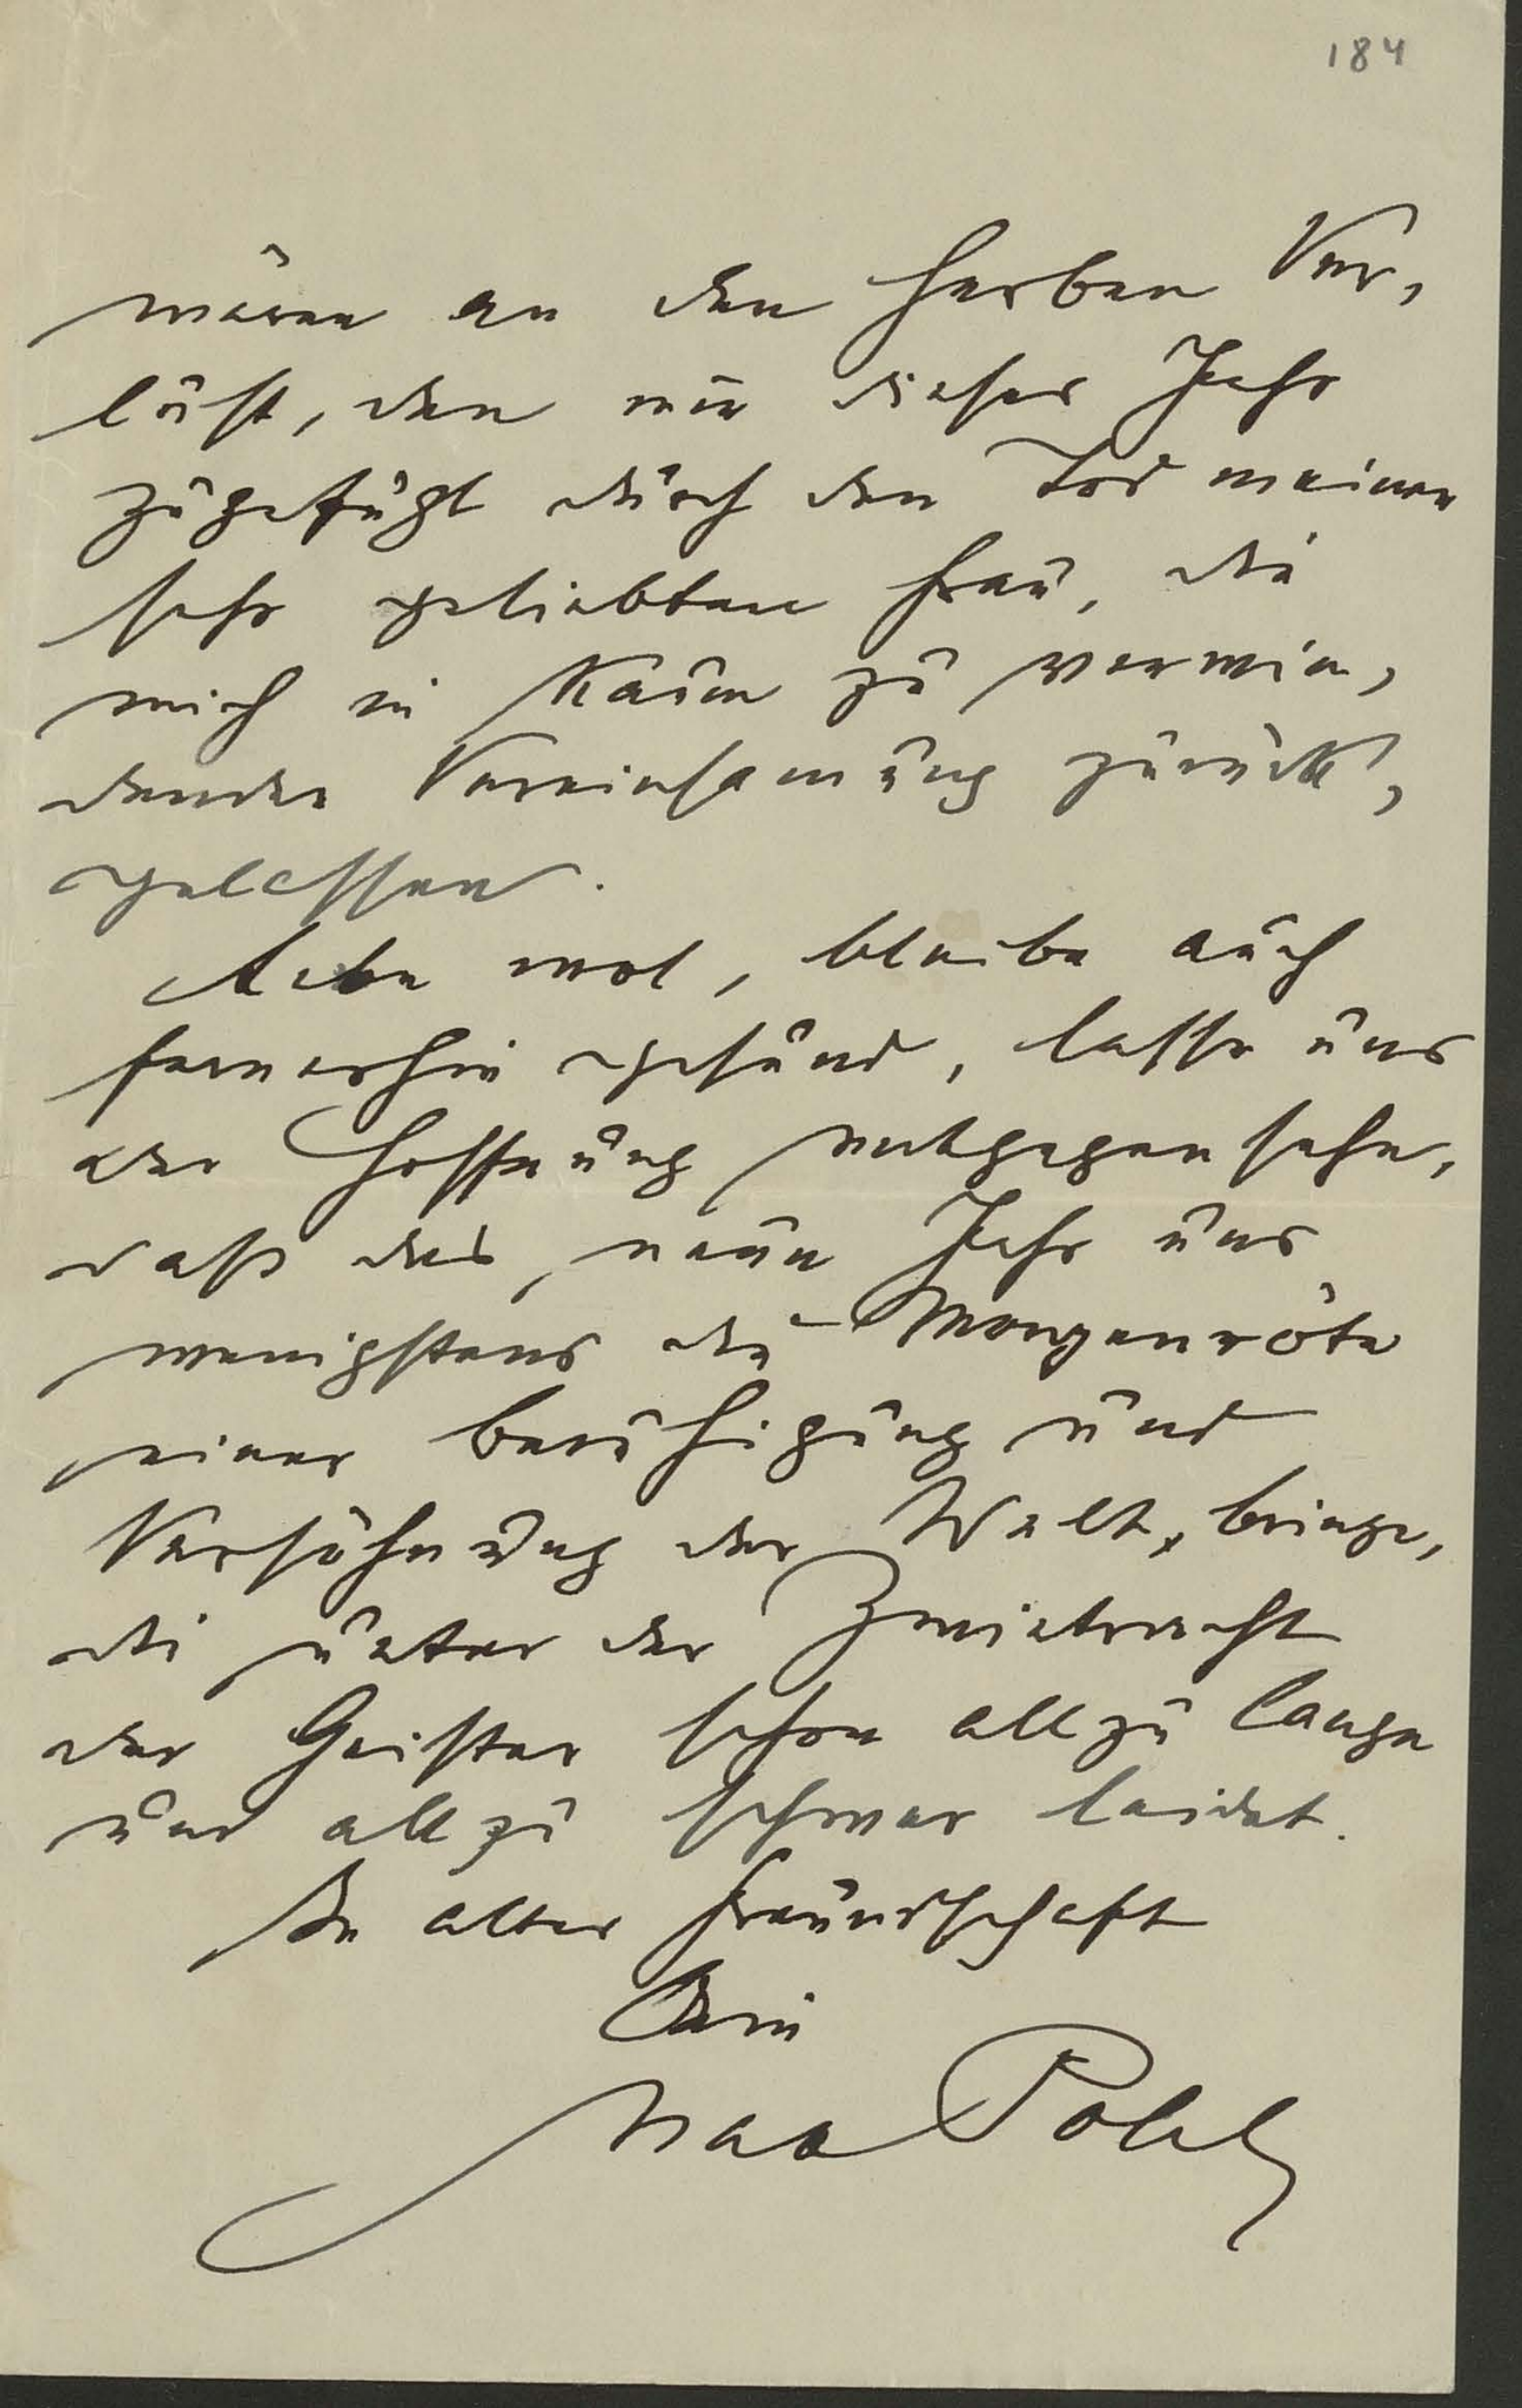 184
wären an den herben Ver-
lust, den mir dieses Jahr
zugefügt durch den Tod meiner
sehr geliebten Frau, die
mich in kaum zu verwin-
dender Vereinsamung zurück-
gelassen.
Lebe wol, bleibe auch
fernerhin gesund, lasse uns
der Hoffnung entgegensehn,
daß das neue Jahr uns
wenigstens die Morgenröte
einer Beruhigung und
Versöhnung der Welt bringe,
die unter der Zwietracht
der Geister schon allzu lange
und allzu schwer leidet.
In alter Freundschaft
Dein
Max Pohl